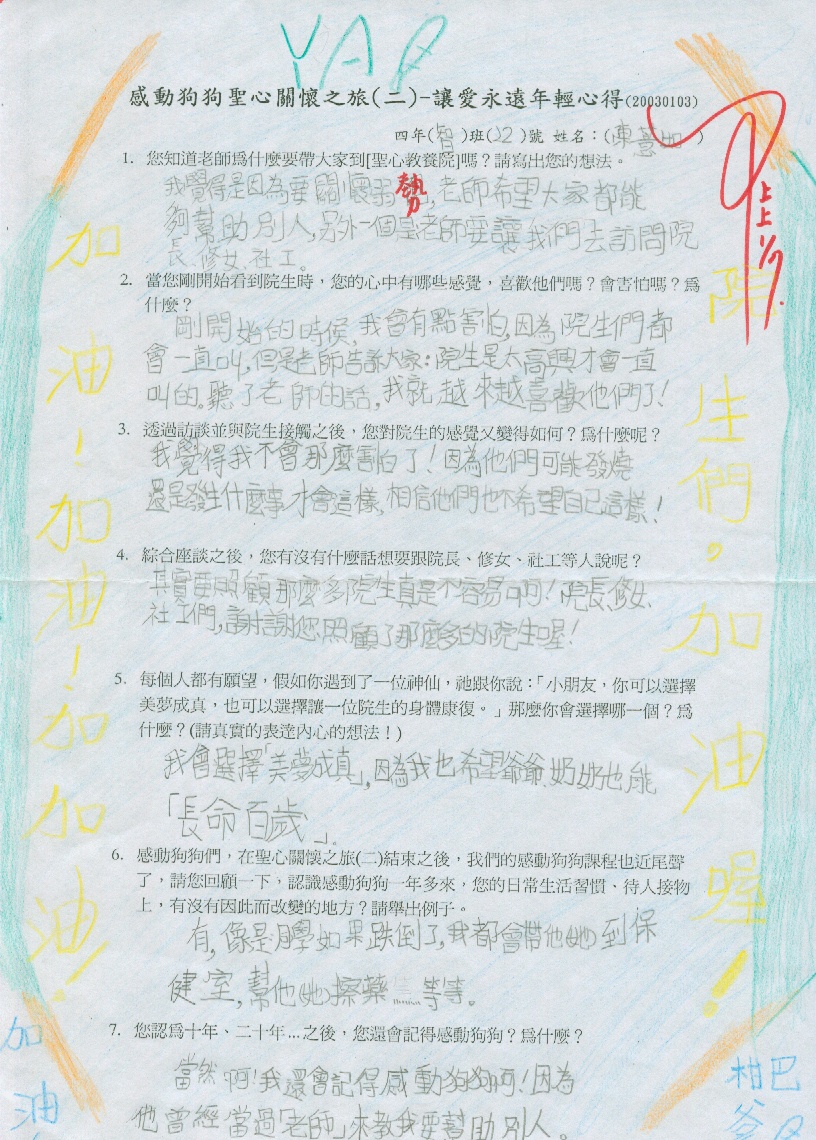 YA
感動狗狗聖心關懷之旅(二)-讓愛永遠年輕心得(20030103)
四年(智)班(22)號 姓名：(陳慧如)
上上 1/7
1. 您知道老師為什麼要帶大家到[聖心教養院]嗎？請寫出您的想法。
我覺得是因為要關懷弱勢,老師希望大家都能
夠幫助別人,另外一個是老師要讓我們去訪問院
長、修女、社工。
2. 當您剛開始看到院生時，您的心中有哪些感覺，喜歡他們嗎？會害怕嗎？為
什麼？
剛開始的時候,我會有點害怕,因為院生們都
會一直叫,但是老師告訴大家:院生是太高興才會一直
叫的。聽了老師的話,我就越來越喜歡他們了!
3. 透過訪談並與院生接觸之後，您對院生的感覺又變得如何？為什麼呢？
我覺得我不會那麼害怕了!因為他們可能發燒
還是發生什麼事才會這樣,相信他們也不希望自己這樣!
4. 綜合座談之後，您有沒有什麼話想要跟院長、修女、社工等人說呢？
其實要照顧那麼多院生真是不容易啊!院長、修女、
社工們,謝謝您照顧了那麼多的院生喔!
5. 每個人都有願望，假如你遇到了一位神仙，祂跟你說：「小朋友，你可以選擇
美夢成真，也可以選擇讓一位院生的身體康復。」那麼你會選擇哪一個？為
什麼？(請真實的表達內心的想法！)
我會選擇「美夢成真」,因為我也希望爺爺、奶奶也能
「長命百歲」。
6. 感動狗狗們，在聖心關懷之旅(二)結束之後，我們的感動狗狗課程也近尾聲
了，請您回顧一下，認識感動狗狗一年多來，您的日常生活習慣、待人接物
上，有沒有因此而改變的地方？請舉出例子。
有,像是同學如果跌倒了,我都會帶他(她)到保
健室,幫他(她)擦藥……等等。
7. 您認為十年、二十年…之後，您還會記得感動狗狗？為什麼？
當然啊!我還會記得感動狗狗啊!因為
他曾經當過「老師」來教我要幫助別人。
加油!加油!加加油!
院生們。加油喔!
加油
柑爸
巴